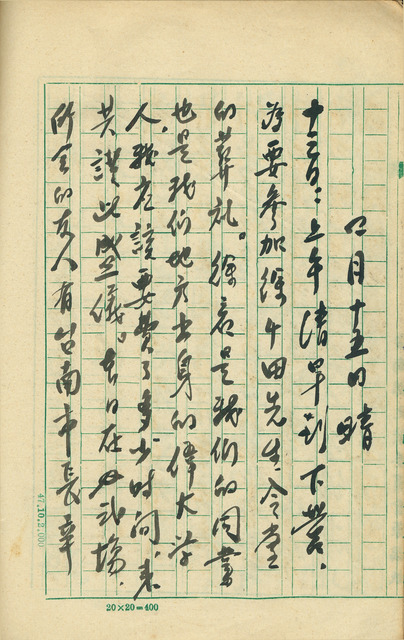 四月十五日 晴
十三日：上午清早到下營。
為要參加徐千田先生令堂
的葬礼。徐君是我們的同業
也是我們地方出身的偉大学
人，我应該要費了多少時間，来
共謹此盛儀。本日在此式場，
所会的友人有台南市長辛
47.10.2,000
20×20=400